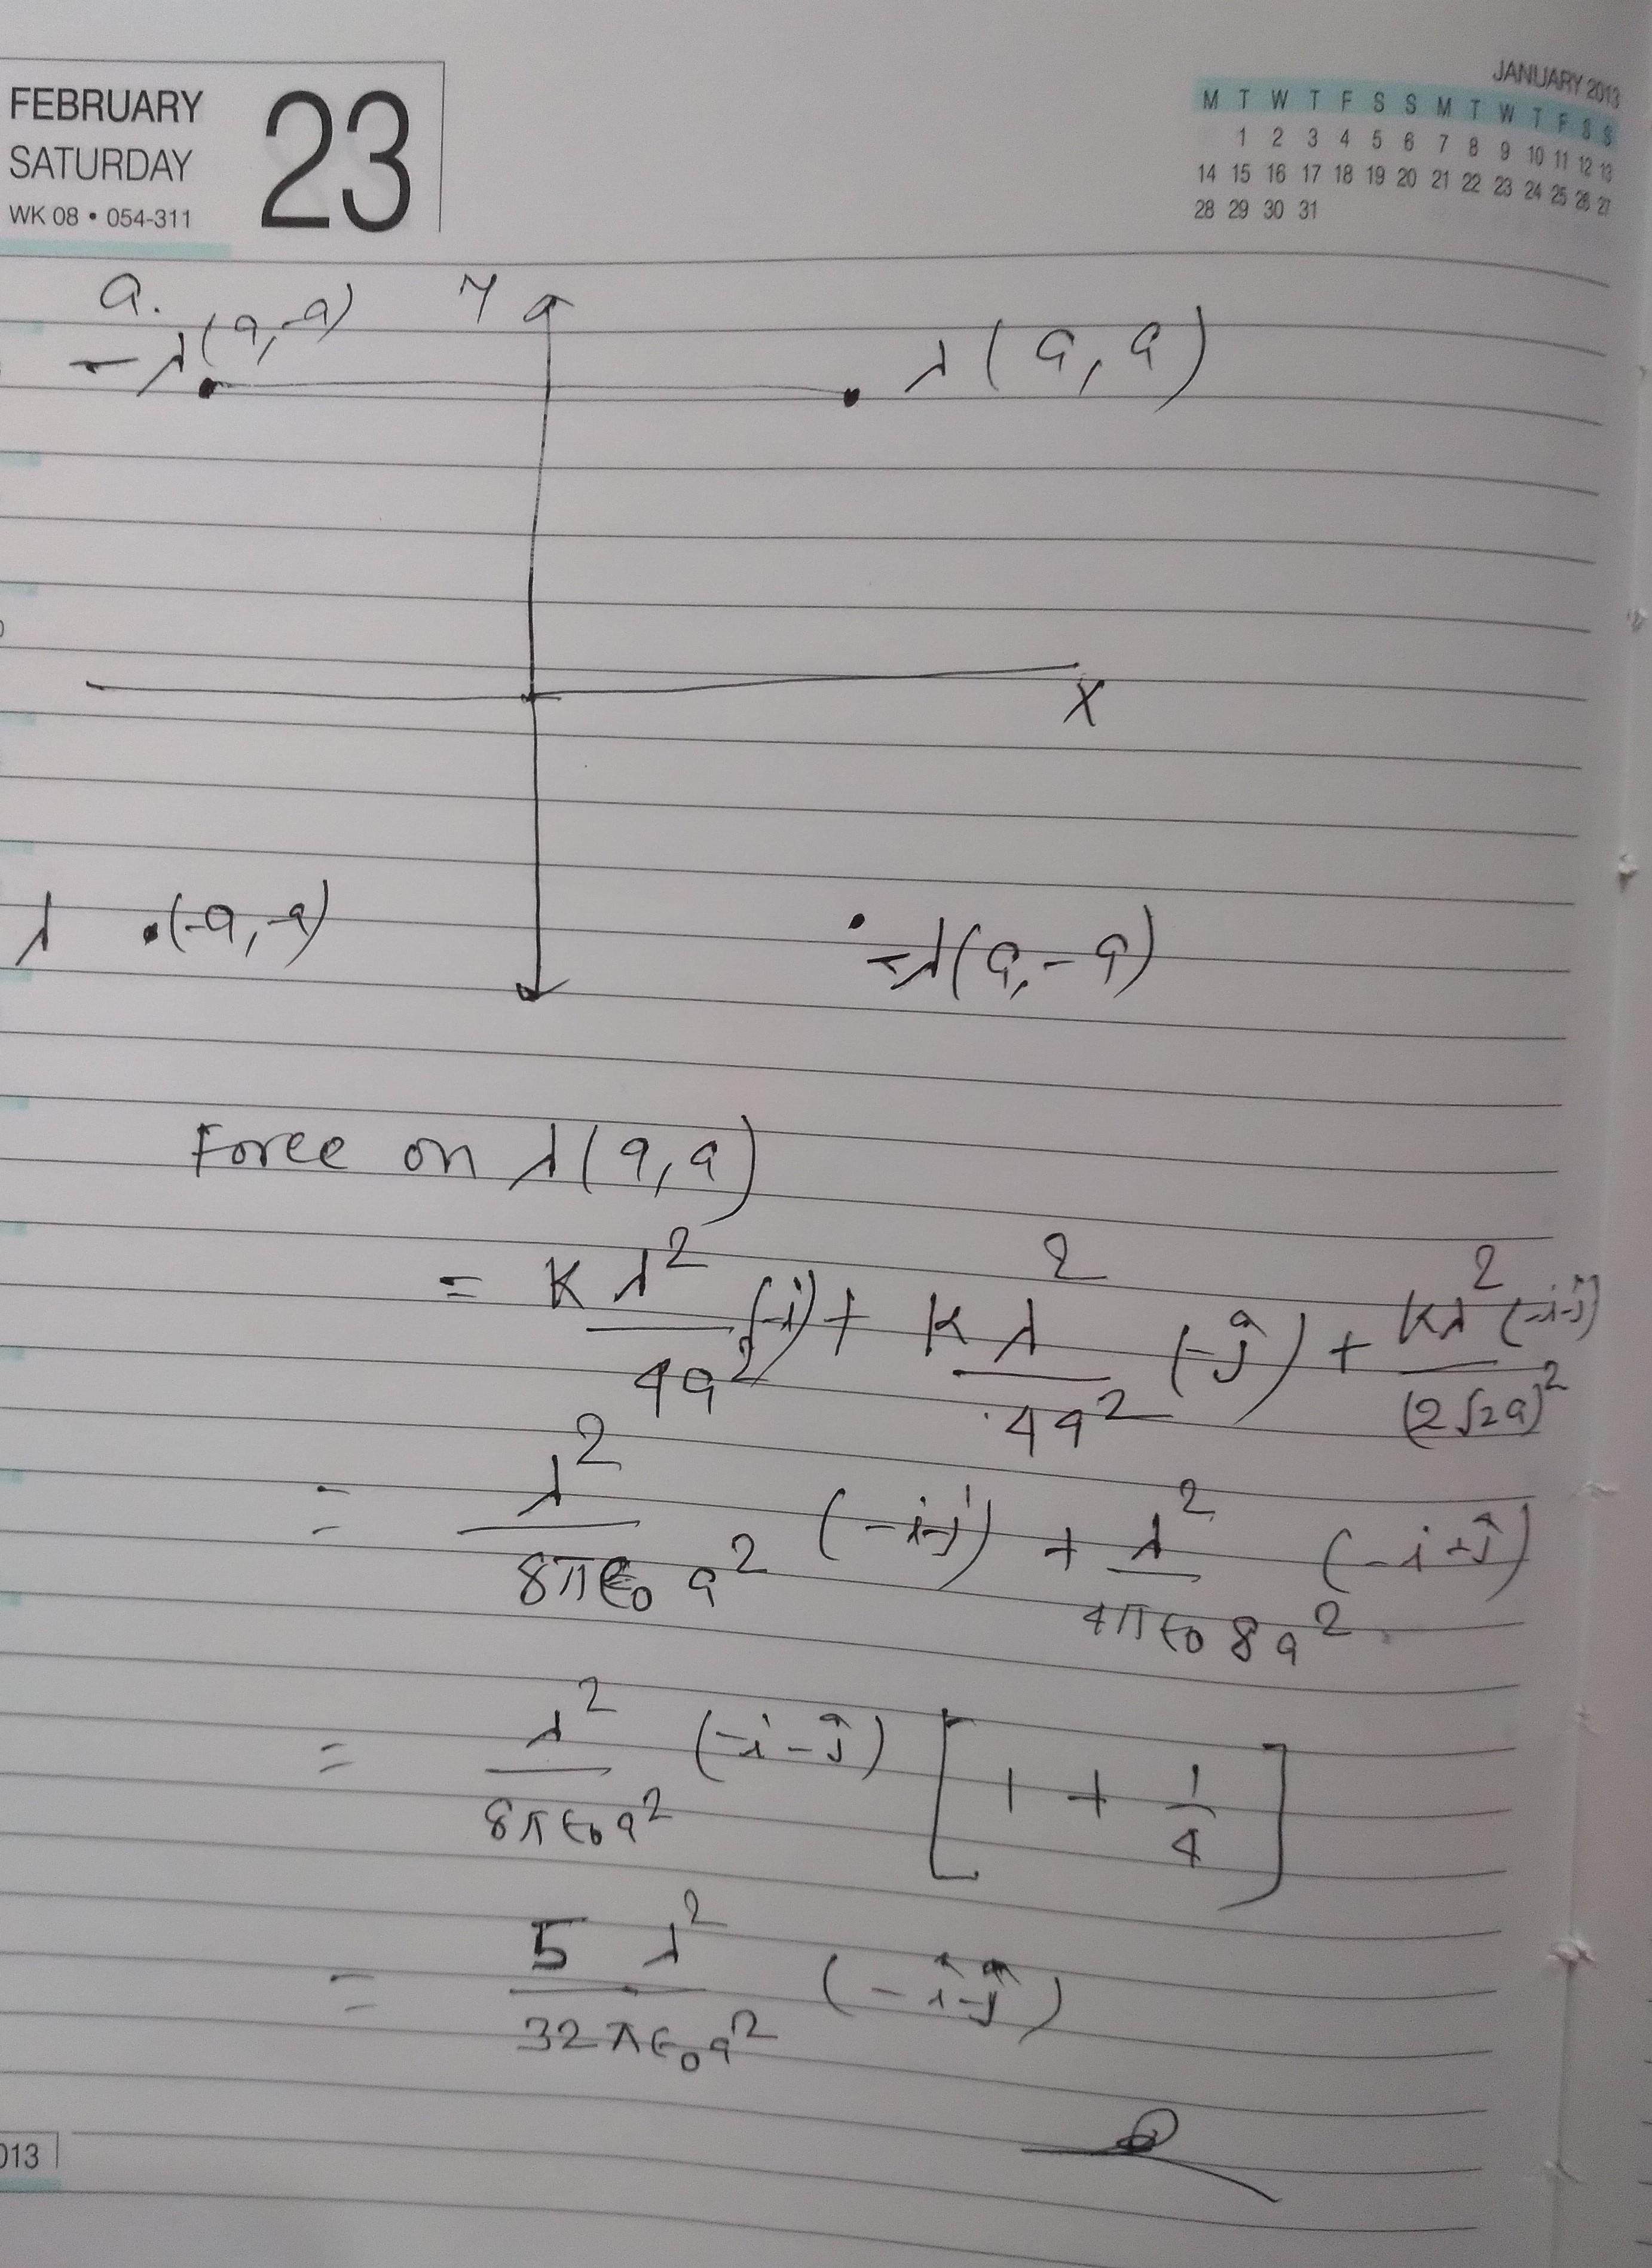 FEBRUARY
SATURDAY
WK 08 • 054-311
23
JANUARY 2013
M T W T F S S M T W T F S S
1 2 3 4 5 6 7 8 9 10 11 12 13
14 15 16 17 18 19 20 21 22 23 24 25 26 27
28 29 30 31
a.
Y
-λ(a,-a)
λ(a,a)
X
λ .(-a,-a)
-λ(a,-a)
Force on λ(a,a)
= Kλ²/4a² (-i) + Kλ²/4a² (-ĵ) + Kλ²(-i-j)/(2√2a)²
= λ²/8πϵ₀a² (-i-j) + λ²/4πϵ₀8a² (-i-ĵ)
= λ²/8πϵ₀a² (-i-ĵ) [1 + 1/4]
= 5λ²/32πϵ₀a² (-î-ĵ)
013